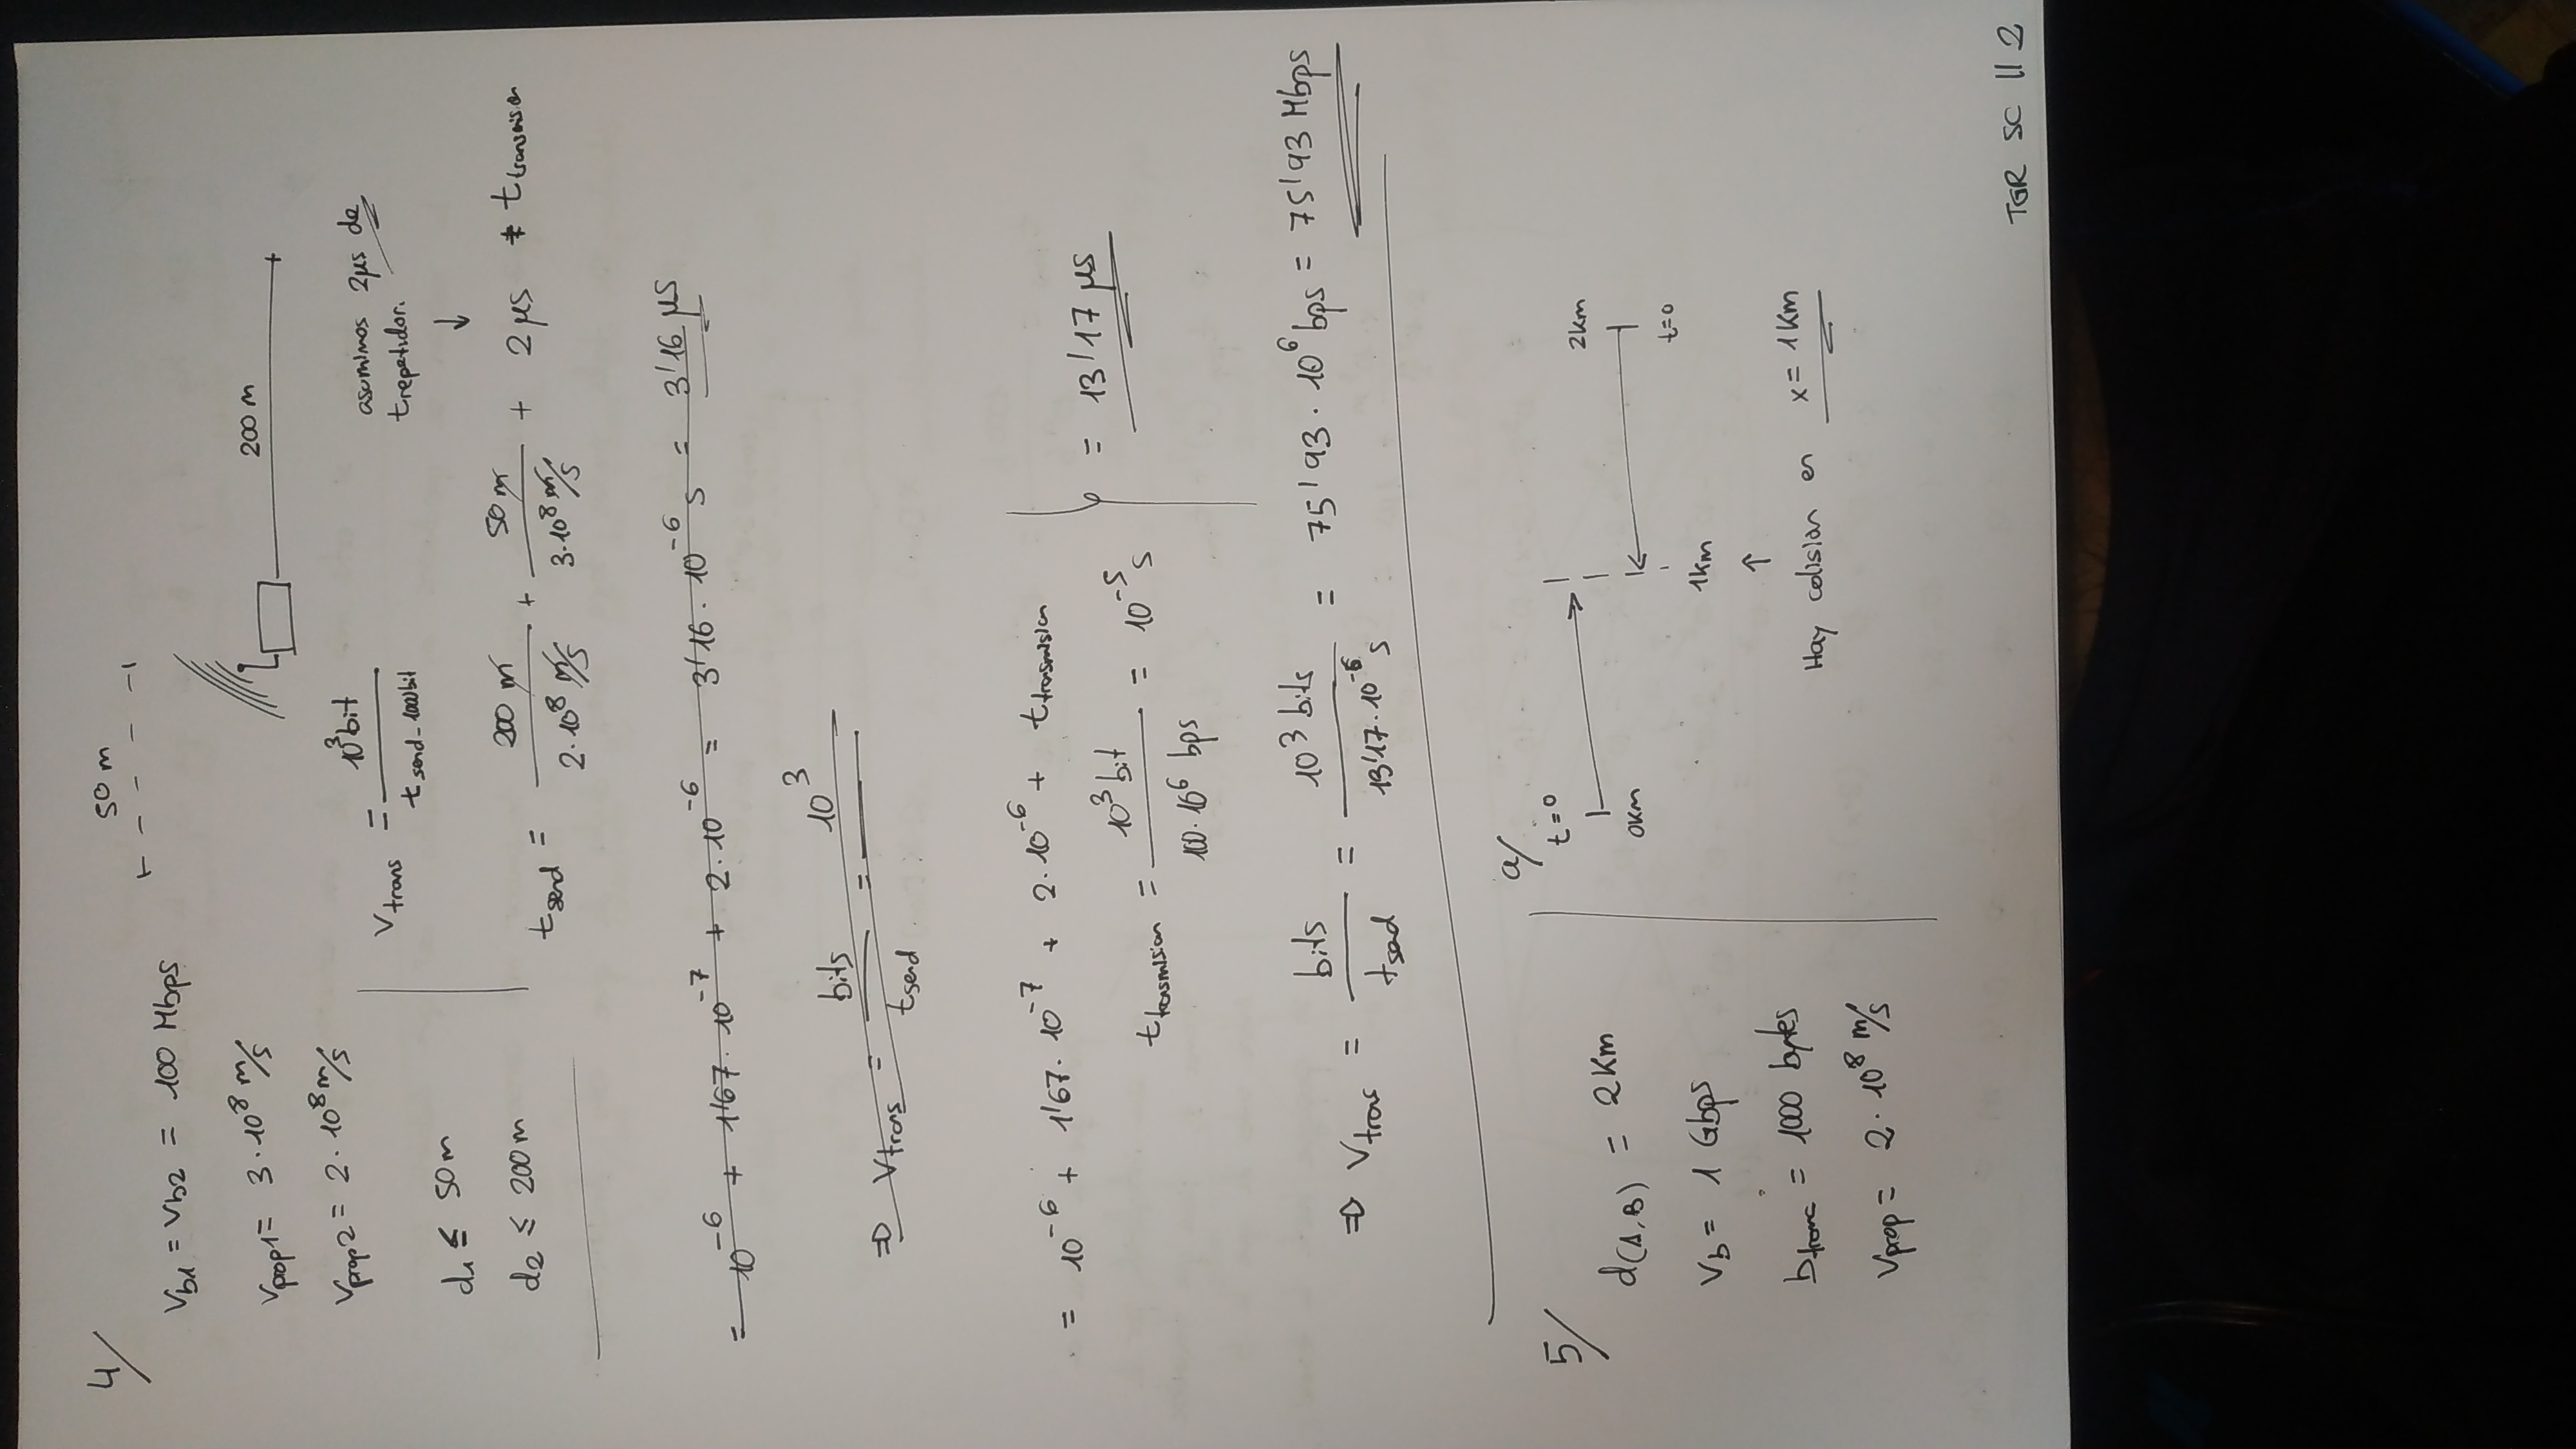 4/
50 m
Vb1 = Vb2 = 100 Mbps
Vprop1 = 3·10^8 m/s
200 m
Vprop2 = 2·10^8 m/s
Vtrans = 10^3 bit / t send-1000bit
asumimos 2μs de
trepetidor.
↓
d1 ≤ 50 m
d2 ≤ 200 m
tsend = 200 m / 2·10^8 m/s + 50 m / 3·10^8 m/s + 2 μs + t transmision
= 10^-6 + 1'67·10^-7 + 2·10^-6 = 3'16·10^-6 s = 3'16 μs
⇒ Vtrans = bits / tsend = 10^3
= 10^-6 + 1'67·10^-7 + 2·10^-6 + t transmision
t transmision = 10^3 bit / 100·10^6 bps = 10^-5 s
= 13'17 μs
⇒ Vtrans = bits / tsend = 10^3 bits / 13'17·10^-6 s = 75'93·10^6 bps = 75'93 Mbps
5/
d(A,B) = 2 Km
Vb = 1 Gbps
btrama = 1000 bytes
Vprop = 2·10^8 m/s
a/
t=0
0Km
2Km
t=0
1Km
↑
Hay colisión en x = 1 Km
TGR SC 11 2